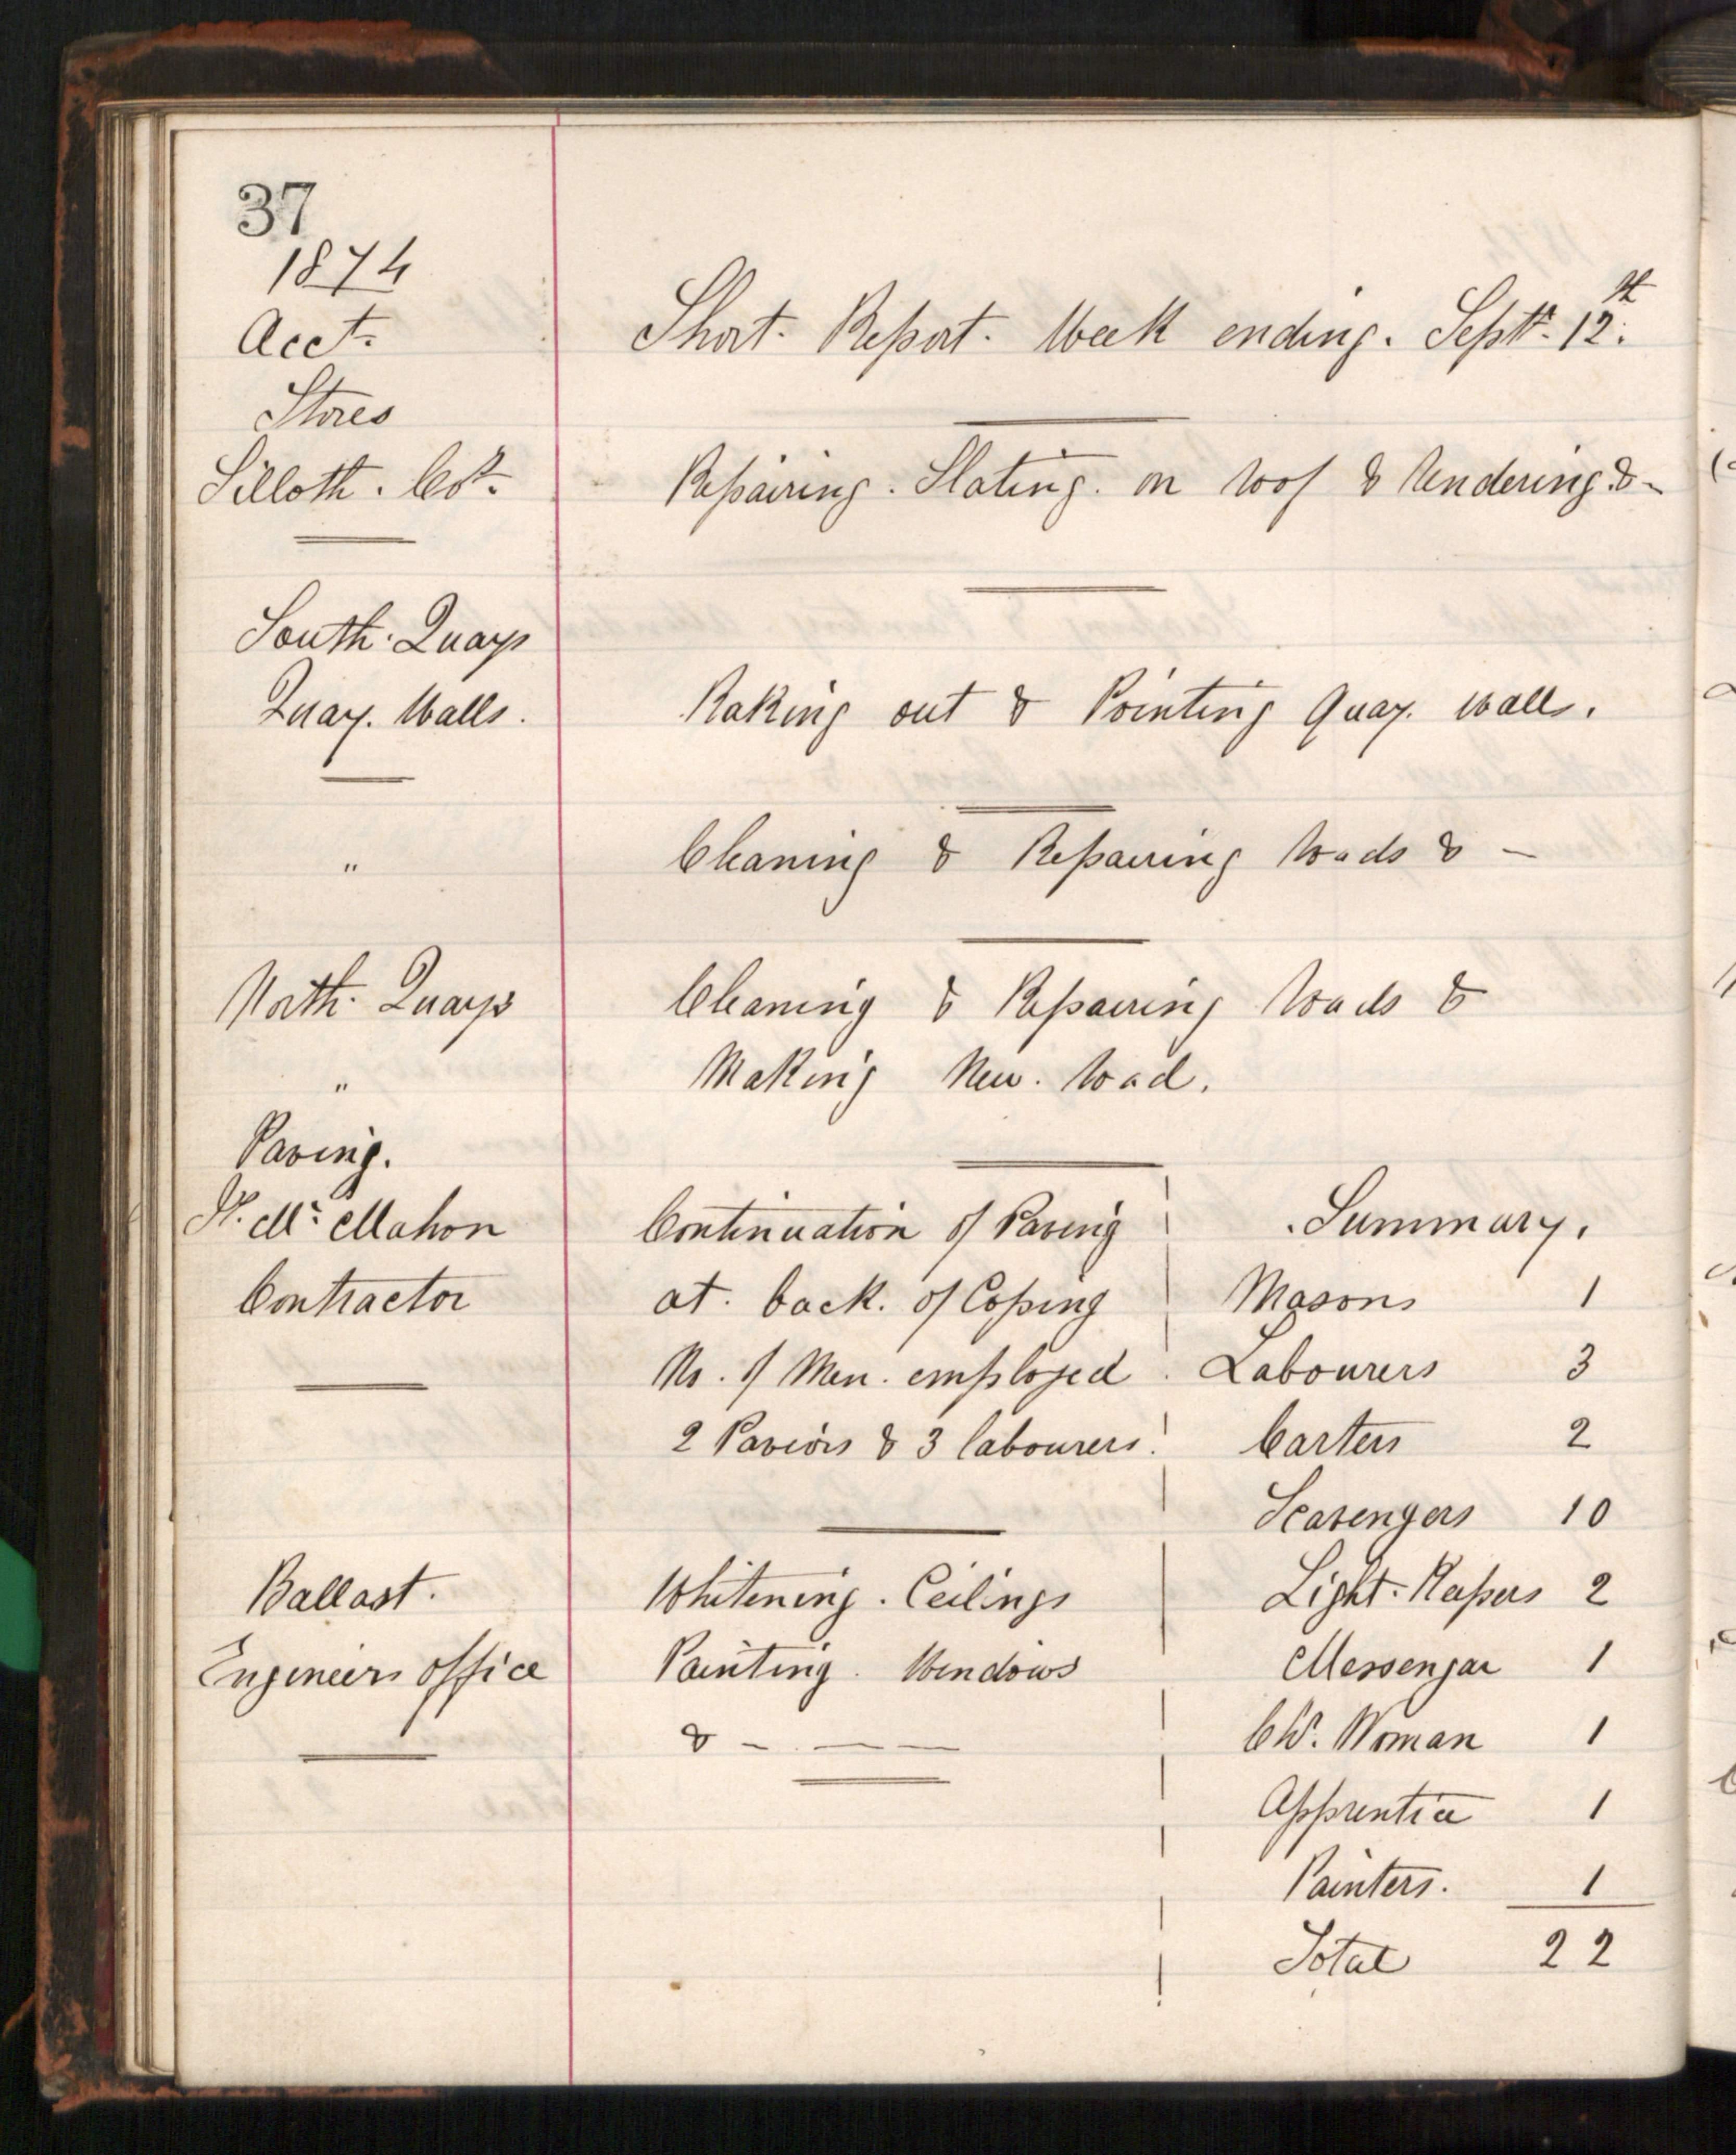 37
1874
Acct. Short Report. Week ending. Septr. 12th.
Stores
Silloth. Co. Repairing. Slating. on roof & Rendering & -
South. Quays
Quay. Walls. Raking out & Pointing Quay. walls.
" Cleaning & Repairing Roads & -
North. Quays Cleaning & Repairing Roads &
" Making New. Road.
Paving.
Mc Mahon Continuation of Paving Summary.
Contractor at. back. of Coping Masons 1
No. of Men. employed Labourers 3
2 Paviors & 3 labourers. Carters 2
Scavengers 10
Ballast. Whitening. Ceilings Light. Keepers 2
Engineers office Painting. Windows Messengar 1
& - - - Ch. Woman 1
Apprentice 1
Painters. 1
Total 22